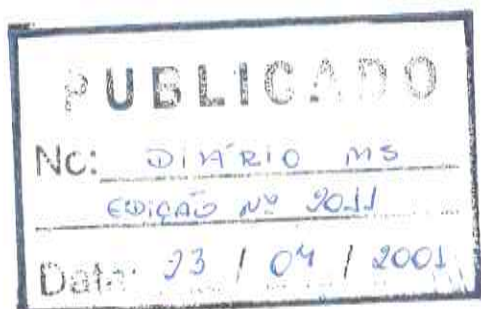 PUBLICADO
No: DIÁRIO MS
EDIÇÃO Nº 2011
Data: 23 / 04 / 2001